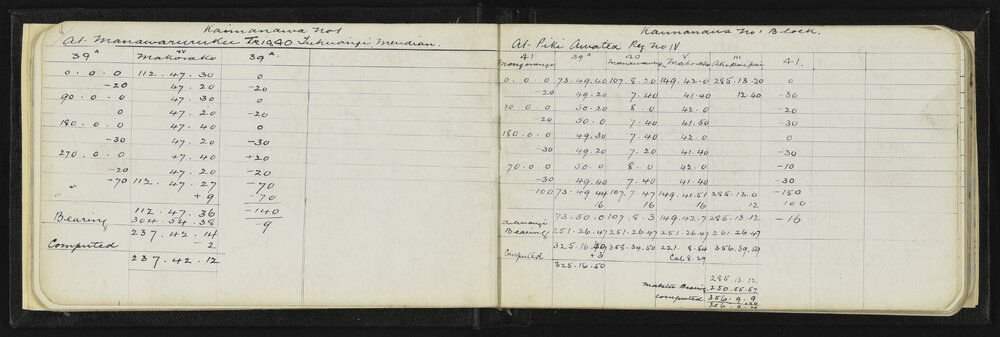 Kaimanawa No 1
At Manawaruruku TRIG 40 Tuhuangi Meridian.
39ᴬ Makorako 39ᴬ
0. 0. 0 112. 47. 30 0
-20 47. 20 -20
90. 0. 0 47. 30 0
0 47. 20 -20
180. 0. 0 47. 40 0
-30 47. 20 -30
270. 0. 0 47. 40 +20
-20 47. 20 -20
-70 112. 47. 27 -70
+ 9 -70
112. 47. 36 -140
Bearing 304. 54. 38 -9
237. 42. 14
Computed - 2
237. 42. 12
Kaimanawa No 1 Block.
At Piki Awatea Reg No IV
41 39ᴬ 40 V III 41.
0. 0. 0 73. 49. 40 107. 8. 20 149. 42. 0 285. 13. 20 0
-20 49. 20 7. 40 41. 40 12. 40 -30
70. 0. 0 50. 20 8. 0 42. 0 -20
-20 50. 0 7. 40 41. 50 -30
180. 0. 0 49. 30 7. 40 42. 0 0
-30 49. 20 7. 20 41. 40 -30
70. 0. 0 50. 0 8. 0 42. 0 -10
-30 49. 40 7. 40 41. 40 -30
-100 73. 49. 44 107. 7. 47 149. 41. 51 285. 13. 0 -150
16 16 16 12 100
73. 50. 0 107. 8. 3 149. 42. 7 285. 13. 12 -16
Tuhuangi
Bearing 251. 26. 47 251. 26. 47 251. 26. 47 251. 26. 47
325. 16. 358. 34. 50 221. 8. 54 356. 39. 59
Computed + 3 Cal 8. 29
325. 16. 50
285. 13. 12
Bearing 250. 55. 57
Computed 356. 9. 9